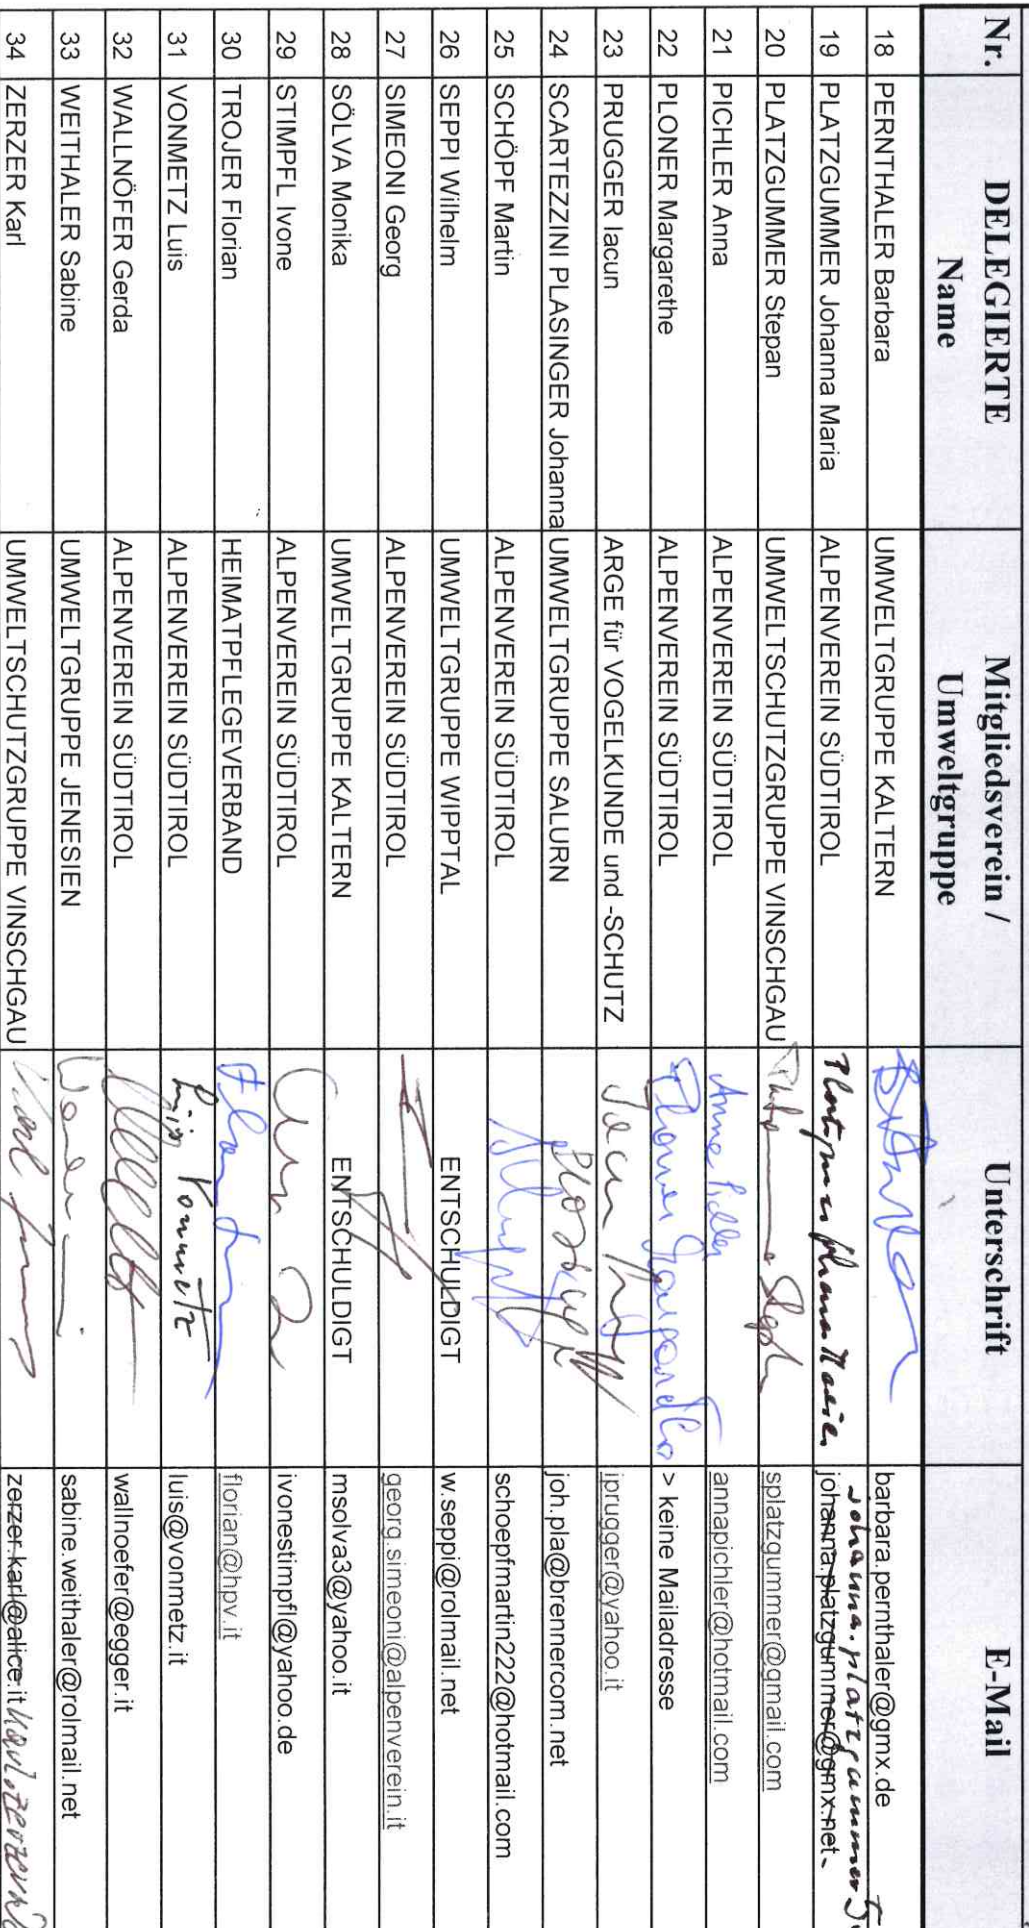 Nr. DELEGIERTE Name Mitgliedsverein / Umweltgruppe Unterschrift E-Mail
18 PERNTHALER Barbara UMWELTGRUPPE KALTERN barbara.pernthaler@gmx.de
19 PLATZGUMMER Johanna Maria ALPENVEREIN SÜDTIROL johanna.platzgummer@gmx.net
20 PLATZGUMMER Stepan UMWELTSCHUTZGRUPPE VINSCHGAU splatzgummer@gmail.com
21 PICHLER Anna ALPENVEREIN SÜDTIROL annapichler@hotmail.com
22 PLONER Margarethe ALPENVEREIN SÜDTIROL > keine Mailadresse
23 PRUGGER Iacun ARGE für VOGELKUNDE und -SCHUTZ iprugger@yahoo.it
24 SCARTEZZINI PLASINGER Johanna UMWELTGRUPPE SALURN joh.pla@brennercom.net
25 SCHÖPF Martin ALPENVEREIN SÜDTIROL schoepfmartin222@hotmail.com
26 SEPPI Wilhelm UMWELTGRUPPE WIPPTAL ENTSCHULDIGT w.seppi@rolmail.net
27 SIMEONI Georg ALPENVEREIN SÜDTIROL georg.simeoni@alpenverein.it
28 SÖLVA Monika UMWELTGRUPPE KALTERN ENTSCHULDIGT msolva3@yahoo.it
29 STIMPFL Ivone ALPENVEREIN SÜDTIROL ivonestimpfl@yahoo.de
30 TROJER Florian HEIMATPFLEGEVERBAND florian@hpv.it
31 VONMETZ Luis ALPENVEREIN SÜDTIROL Vonmetz luis@vonmetz.it
32 WALLNÖFER Gerda ALPENVEREIN SÜDTIROL wallnoefer@egger.it
33 WEITHALER Sabine UMWELTGRUPPE JENESIEN sabine.weithaler@rolmail.net
34 ZERZER Karl UMWELTSCHUTZGRUPPE VINSCHGAU zerzer.karl@alice.it